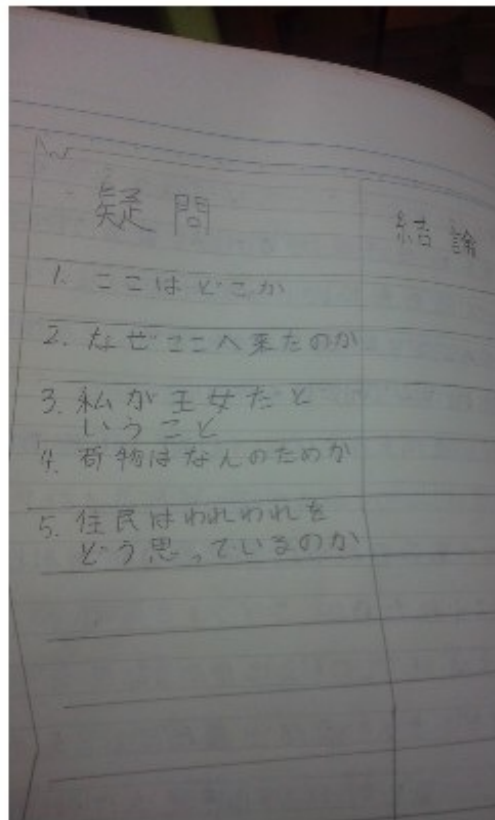 疑問
結論
1. ここはどこか
2. なぜここへ来たのか
3. 私が王女だと
いうこと
4. 荷物はなんのためか
5. 住民はわれわれを
どう思っているのか